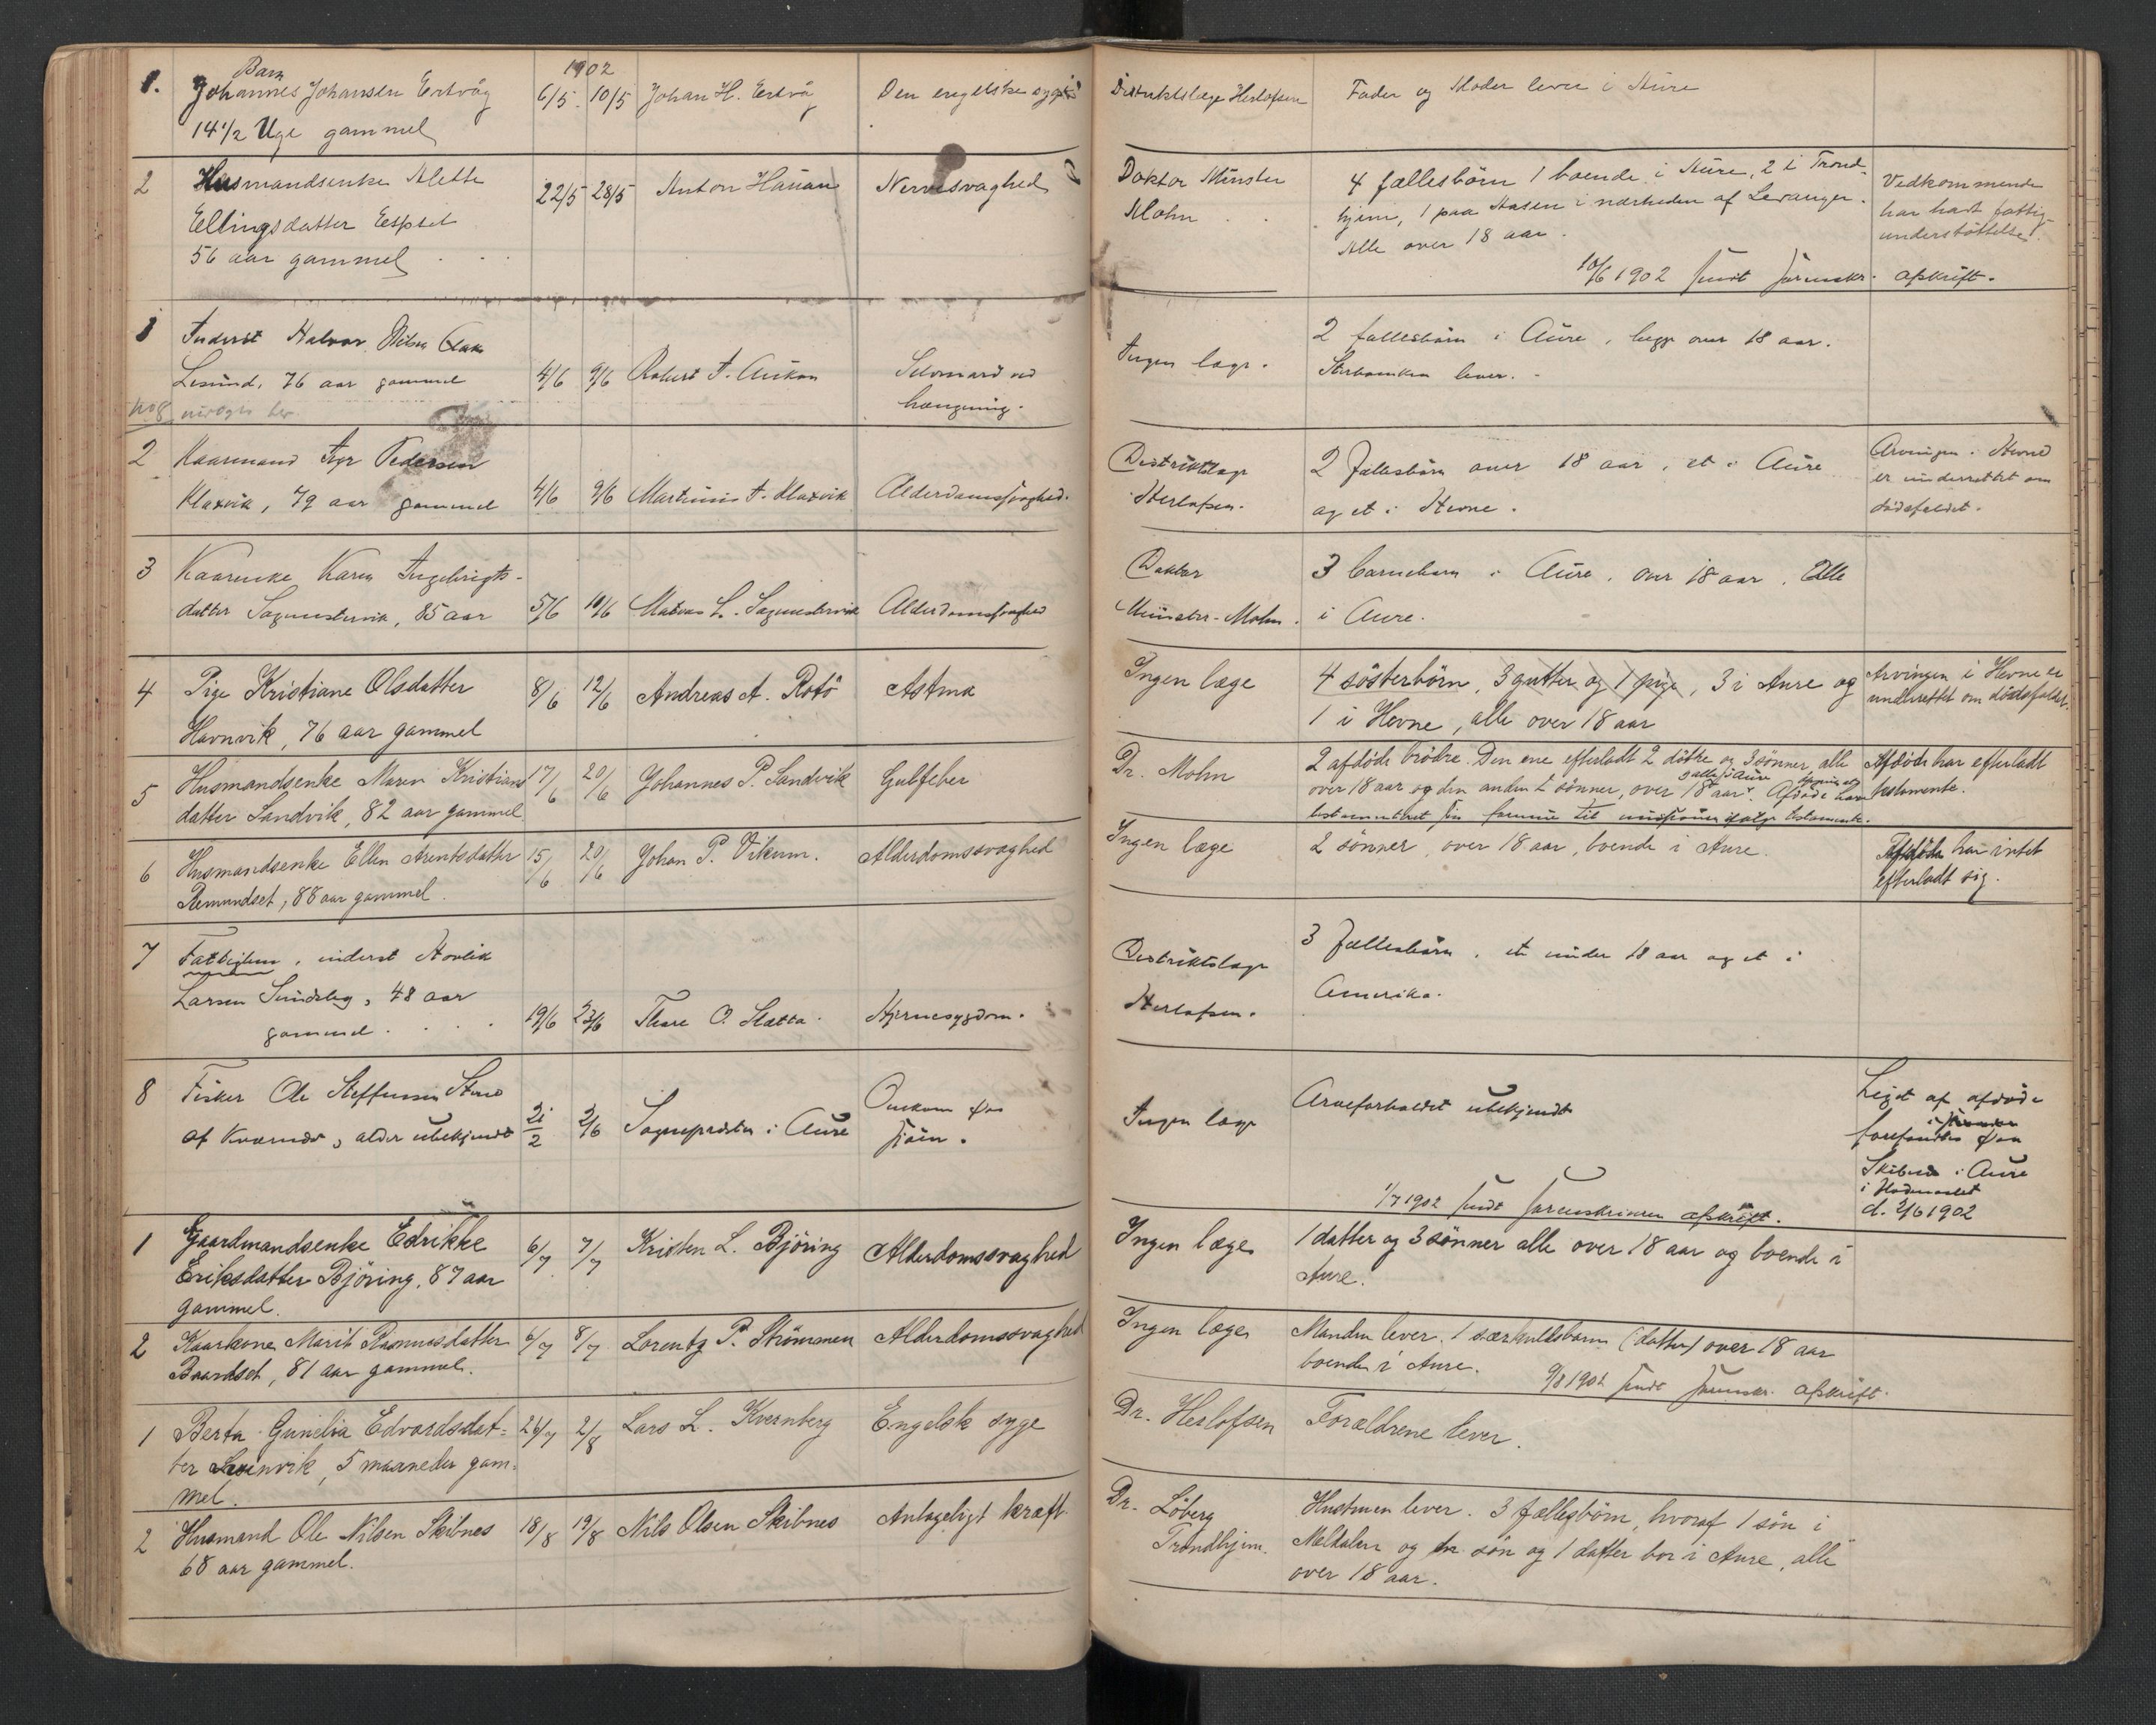 1902
1. Barn
Johannes Johansen Ertvåg
14 1/2 Uge gammel
6/5 10/5 Johan H. Ertvåg
Den engelske syge
Distriktslæge Herlofsen
Fader og Moder lever i Aure
2 Husmandsenke Alette
Ellingsdatter
56 aar gammel
22/5 28/5 Anton Hanan
Nervesvaghed
Doktor Münster
Mohn
4 fællesbörn 1 boende i Aure, 2 i Trond-
hjem, 1 paa Aasen i nærheden af Levanger.
Alle over 18 aar.
Vedkommende
har havt fattig-
understöttelse.
10/6 1902 sendt sorenskr. afskrift.
1 Inderst Halvor Nilsen
Lesund, 76 aar gammel
No 8
4/6 9/6 Robert A. Aukan
Selvmord ved
hængning.
Ingen læge.
2 fællesbörn i Aure, begge over 18 aar.
lever.
2 Kaarmand Pedersen
Klaxvik, 79 aar gammel
4/6 9/6 Martinus A. Klaxvik
Alderdomssvaghed.
Distriktslæge
Herlofsen.
2 fællesbörn over 18 aar, et i Aure
og et i Hevne.
Arvingen i Hevne
er underrettet om
dödsfaldet.
3 Kaarenke Karen Ingebrigts-
datter Sagmestervik, 85 aar
5/6 10/6 Mathias L. Sagmestervik
Alderdomssvaghed
Doktor
Münster-Mohn.
3 barnebarn i Aure, over 18 aar. Alle
i Aure.
4 Pige Kristiane Olsdatter
Havnvik, 76 aar gammel
8/6 12/6 Andreas A. Rotö
Astma
Ingen læge
4 sösterbörn, 3 gutter og 1 pige, 3 i Aure og
1 i Hevne, alle over 18 aar
Arvingen i Hevne er
underrettet om dödsfaldet.
5 Husmandsenke Maren Kristians
datter Sandvik, 82 aar gammel
17/6 20/6 Johannes P. Sandvik
Gulfeber
Dr. Mohn
2 afdöde brödre. Den ene efterladt 2 dötre og 3 sönner, alle
over 18 aar og den anden 2 sönner, over 18 aar. alle i Aure Afdöde have
testamenteret sin formue til missionen ifölge testamente.
Afdöde har efterladt
testamente.
6 Husmandsenke Ellen Arentsdatter
Remundset, 88 aar gammel.
15/6 20/6 Johan P. Vikum.
Alderdomssvaghed
Ingen læge
2 sönner, over 18 aar, boende i Aure.
Afdöde har intet
efterladt sig.
7 Fattiglem, inderst Hovlik
Larsen Sundsleg, 48 aar
gammel.
19/6 23/6 Thore O. Sletta.
Hjernesygdom.
Distriktslæge
Herlofsen.
3 Fællesbörn, et under 18 aar og et i
Amerika.
8 Fisker Ole Steffensen
af Kvernes, alder ubekjendt
21/2 2/6 Sognepresten i Aure
Omkom paa
sjöen.
Ingen læge
Arveforholdet ubekjendt
Liget af afdöde
forefandtes paa
Skibnes i Aure
d. 2/6 1902
1/7 1902 sendt sorenskriveren afskrift.
1 Gaardmandsenke Edrikke
Eriksdatter Björing, 87 aar
gammel.
6/7 7/7 Kristen L. Björing
Alderdomssvaghed
Ingen læge
1 datter og 3 sönner alle over 18 aar og boende i
Aure.
2 Kaarkone Marit Rasmusdatter
Baardset, 81 aar gammel.
6/7 8/7 Lorentz P. Strömmen
Alderdomssvaghed
Ingen læge
Manden lever. 1 særkuldsbarn (datter) over 18 aar
boende i Aure.
9/8 1902 sendt sorenskr. afskrift.
1 Berta Gunelia Edvardsdat-
ter Svinvik, 5 maaneder gam-
mel.
26/7 2/8 Lars L. Kvernberg
Engelsk syge
Dr. Herlofsen
Forældrene lever.
2 Husmand Ole Nilsen Skibnes
68 aar gammel.
18/8 19/8 Nils Olsen Skibnes
Antageligt kræft
Dr. Löberg
Trondhjem.
Hustruen lever. 3 fællesbörn, hvoraf 1 sön i
Meldalen og en sön og 1 datter bor i Aure, alle
over 18 aar.